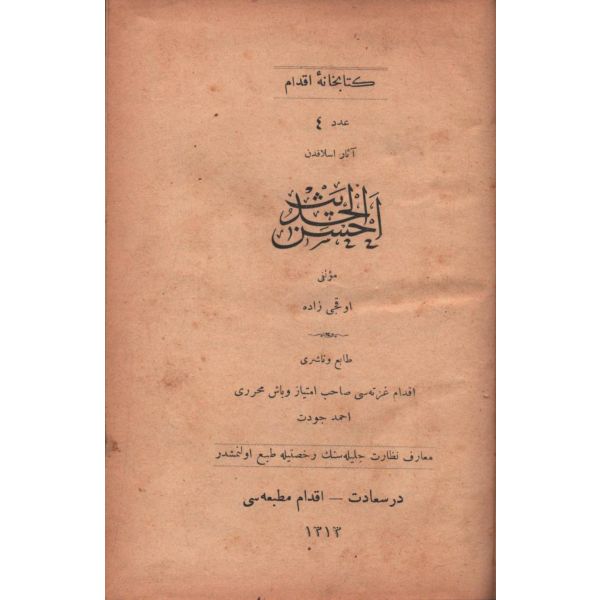 كتابخانهٔ اقدام
عدد ٤
آثار اسلافدن
احسن الحديث
مؤلفى
اوقجى زاده
طابع وناشرى
اقدام غزته‌سى صاحب امتياز وباش محررى
احمد جودت
معارف نظارت جليله‌سنك رخصتيله طبع اولنمشدر
درسعادت — اقدام مطبعه‌سى
١٣١٣